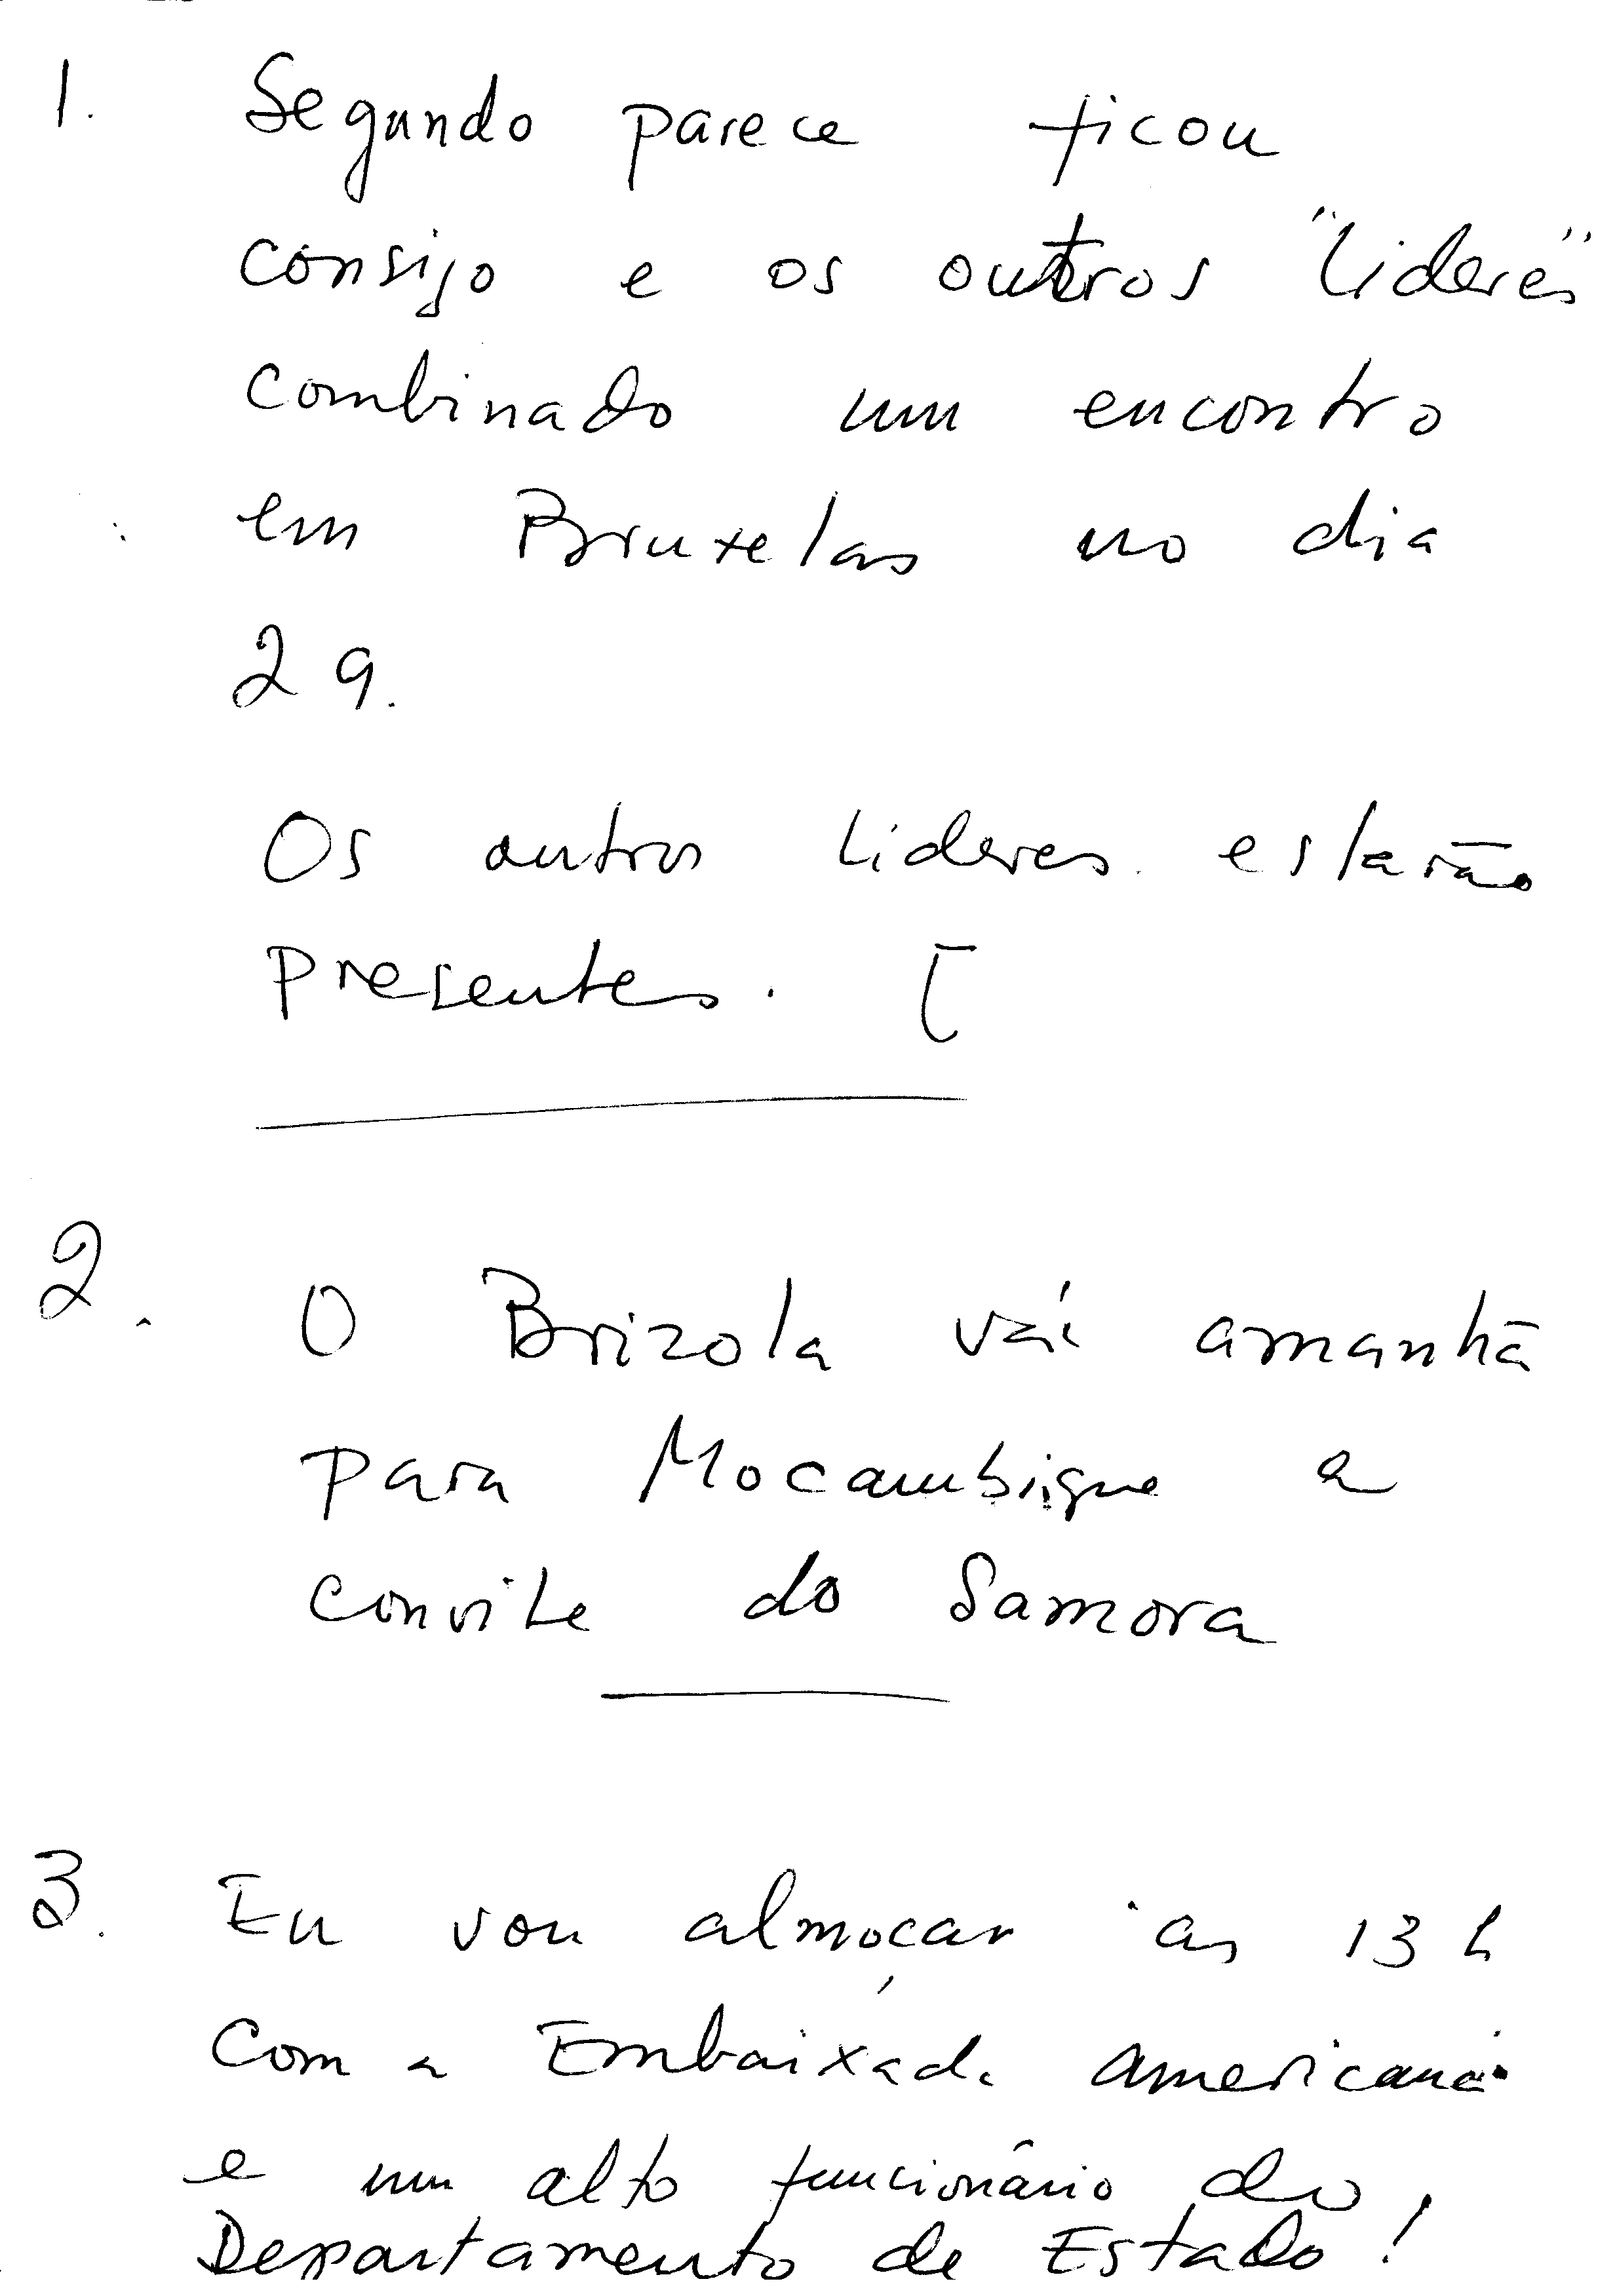 1. Segundo parece ficou
consigo e os outros "lideres"
combinado um encontro
em Bruxelas no dia
29.
Os outros lideres estarão
presentes. [
2. O Brizola vai amanhã
para Mocambique a
convite do Samora
3. Eu vou almoçar as 13 h
com a Embaixada americana
e um alto funcionário do
Departamento de Estado!